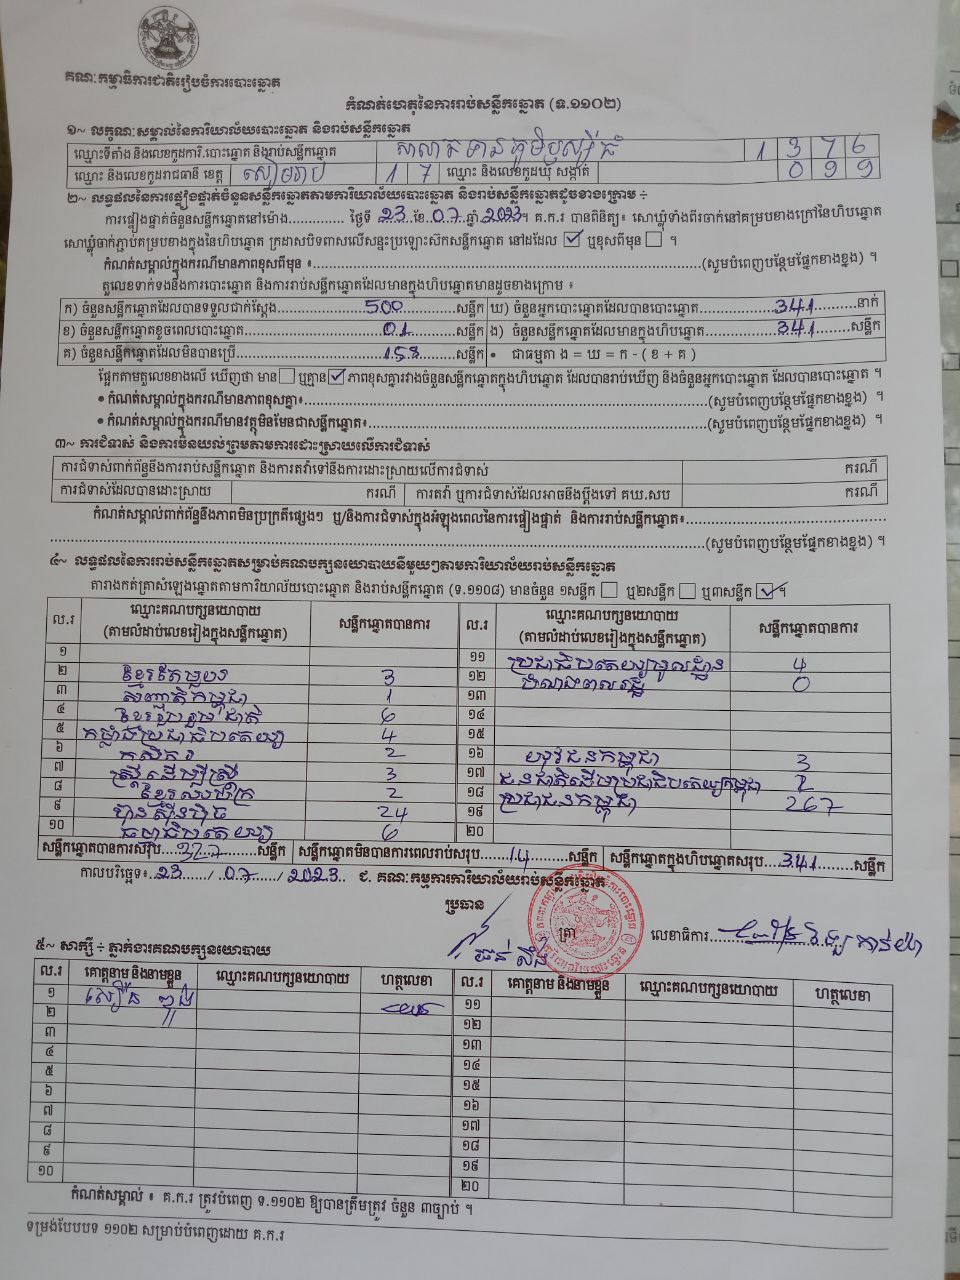 គណៈកម្មាធិការជាតិរៀបចំការបោះឆ្នោត
កំណត់ហេតុនៃការរាប់សន្លឹកឆ្នោត (ទ.១១០២)
១~ លក្ខណៈសម្គាល់នៃការិយាល័យបោះឆ្នោត និងរាប់សន្លឹកឆ្នោត
ឈ្មោះទីតាំង និងលេខកូដការិ.បោះឆ្នោត និងរាប់សន្លឹកឆ្នោត សាលាឆទាន ភូមិឫស្សី 1 3 7 6
ឈ្មោះ និងលេខកូដរាជធានី ខេត្ត សៀមរាប 1 7 ឈ្មោះ និងលេខកូដឃុំ សង្កាត់ 0 9 9
២~ លទ្ធផលនៃការផ្ទៀងផ្ទាត់ចំនួនសន្លឹកឆ្នោតតាមការិយាល័យបោះឆ្នោត និងរាប់សន្លឹកឆ្នោតដូចខាងក្រោម ÷
ការផ្ទៀងផ្ទាត់ចំនួនសន្លឹកឆ្នោតនៅម៉ោង.............. ថ្ងៃទី 23 ខែ 07 ឆ្នាំ 2023។ គ.ក.រ បានពិនិត្យ៖ សោឃ្លុំទាំងពីរចាក់នៅគម្របខាងក្រៅនៃហិបឆ្នោត
សោឃ្លុំចាក់ភ្ជាប់គម្របខាងក្នុងនៃហិបឆ្នោត ក្រដាសបិទពាសលើសន្ទះប្រឡោះស៊កសន្លឹកឆ្នោត នៅដដែល ☑ ឬខុសពីមុន ☐ ។
កំណត់សម្គាល់ក្នុងករណីមានភាពខុសពីមុន ៖..........(សូមបំពេញបន្ថែមផ្នែកខាងខ្នង) ។
តួលេខទាក់ទងនឹងការបោះឆ្នោត និងការរាប់សន្លឹកឆ្នោតដែលមានក្នុងហិបឆ្នោតមានដូចខាងក្រោម ៖
ក) ចំនួនសន្លឹកឆ្នោតដែលបានទទួលជាក់ស្តែង 500 សន្លឹក ឃ) ចំនួនអ្នកបោះឆ្នោតដែលបានបោះឆ្នោត 341 នាក់
ខ) ចំនួនសន្លឹកឆ្នោតខូចពេលបោះឆ្នោត 01 សន្លឹក ង) ចំនួនសន្លឹកឆ្នោតដែលមានក្នុងហិបឆ្នោត 341 សន្លឹក
គ) ចំនួនសន្លឹកឆ្នោតដែលមិនបានប្រើ 158 សន្លឹក • ជាធម្មតា ង = ឃ = ក - ( ខ + គ )
ផ្អែកតាមតួលេខខាងលើ ឃើញថា មាន ☐ ឬគ្មាន ☑ ភាពខុសគ្នារវាងចំនួនសន្លឹកឆ្នោតក្នុងហិបឆ្នោត ដែលបានរាប់ឃើញ និងចំនួនអ្នកបោះឆ្នោត ដែលបានបោះឆ្នោត ។
• កំណត់សម្គាល់ក្នុងករណីមានភាពខុសគ្នា៖..........(សូមបំពេញបន្ថែមផ្នែកខាងខ្នង) ។
• កំណត់សម្គាល់ក្នុងករណីមានវត្ថុមិនមែនជាសន្លឹកឆ្នោត៖..........(សូមបំពេញបន្ថែមផ្នែកខាងខ្នង) ។
៣~ ការជំទាស់ និងការមិនយល់ព្រមតាមការដោះស្រាយលើការជំទាស់
ការជំទាស់ពាក់ព័ន្ធនឹងការរាប់សន្លឹកឆ្នោត និងការតវ៉ាទៅនឹងការដោះស្រាយលើការជំទាស់ ករណី
ការជំទាស់ដែលបានដោះស្រាយ ករណី ការតវ៉ា ឬការជំទាស់ដែលអាចនឹងប្តឹងទៅ គឃ.សប ករណី
កំណត់សម្គាល់ពាក់ព័ន្ធនឹងភាពមិនប្រក្រតីផ្សេងៗ ឬ/និងការជំទាស់ក្នុងអំឡុងពេលនៃការផ្ទៀងផ្ទាត់ និងការរាប់សន្លឹកឆ្នោត៖..........
..........(សូមបំពេញបន្ថែមផ្នែកខាងខ្នង) ។
៤~ លទ្ធផលនៃការរាប់សន្លឹកឆ្នោតសម្រាប់គណបក្សនយោបាយនីមួយៗតាមការិយាល័យរាប់សន្លឹកឆ្នោត
តារាងកត់ត្រាសំឡេងឆ្នោតតាមការិយាល័យបោះឆ្នោត និងរាប់សន្លឹកឆ្នោត (ទ.១១០៨) មានចំនួន ១សន្លឹក ☐ ឬ២សន្លឹក ☐ ឬ៣សន្លឹក ☑ ។
ល.រ ឈ្មោះគណបក្សនយោបាយ (តាមលំដាប់លេខរៀងក្នុងសន្លឹកឆ្នោត) សន្លឹកឆ្នោតបានការ ល.រ ឈ្មោះគណបក្សនយោបាយ (តាមលំដាប់លេខរៀងក្នុងសន្លឹកឆ្នោត) សន្លឹកឆ្នោតបានការ
១ ១១ ប្រជាធិបតេយ្យមូលដ្ឋាន 4
២ ខ្មែរតែមួយ 3 ១២ បំលាងពលរដ្ឋ 0
៣ សញ្ជាតិកម្ពុជា 1 ១៣
៤ ខ្មែររួបរួមជាតិ 6 ១៤
៥ កម្លាំងប្រជាធិបតេយ្យ 4 ១៥
៦ កសិករ 2 ១៦ យុវជនកម្ពុជា 3
៧ ស្ត្រីដើម្បីស្ត្រី 3 ១៧ ជនជាតិដើមប្រជាធិបតេយ្យកម្ពុជា 2
៨ 2 ១៨ ប្រជាជនកម្ពុជា 267
៩ ហ៊្វុនស៊ិនប៉ិច 24 ១៩
១០ ធម្មាធិបតេយ្យ 6 ២០
សន្លឹកឆ្នោតបានការសរុប 327 សន្លឹក សន្លឹកឆ្នោតមិនបានការពេលរាប់សរុប 14 សន្លឹក សន្លឹកឆ្នោតក្នុងហិបឆ្នោតសរុប 341 សន្លឹក
កាលបរិច្ឆេទ៖ 23 / 07 / 2023 ជ. គណៈកម្មការការិយាល័យរាប់សន្លឹកឆ្នោត
ប្រធាន
ត្រា
លេខាធិការ
៥~ សាក្សី ÷ ភ្នាក់ងារគណបក្សនយោបាយ
ល.រ គោត្តនាម និងនាមខ្លួន ឈ្មោះគណបក្សនយោបាយ ហត្ថលេខា ល.រ គោត្តនាម និងនាមខ្លួន ឈ្មោះគណបក្សនយោបាយ ហត្ថលេខា
១ ១១
២ ១២
៣ ១៣
៤ ១៤
៥ ១៥
៦ ១៦
៧ ១៧
៨ ១៨
៩ ១៩
១០ ២០
កំណត់សម្គាល់ ៖ គ.ក.រ ត្រូវបំពេញ ទ.១១០២ ឱ្យបានត្រឹមត្រូវ ចំនួន ៣ច្បាប់ ។
ទម្រង់បែបបទ ១១០២ សម្រាប់បំពេញដោយ គ.ក.រ